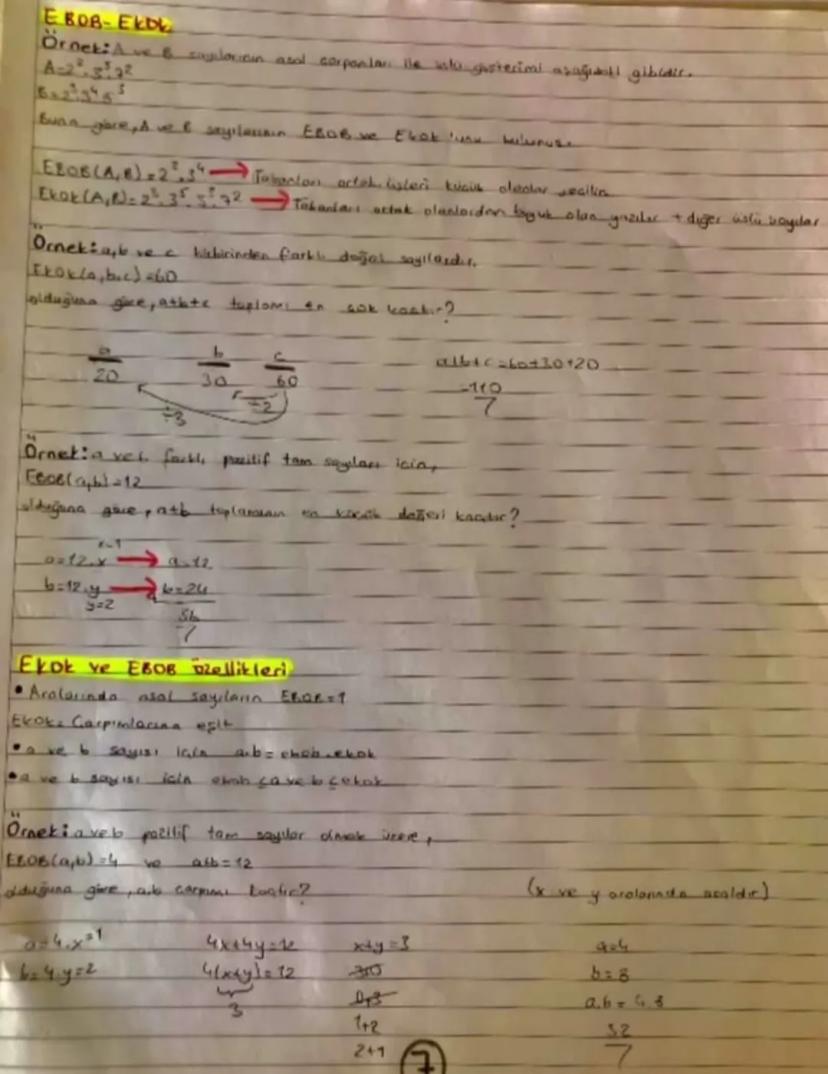 EBOB-EKOK
Örnek: A ve B sayılarının asal çarpanları ile üslü gösterimi aşağıdaki gibidir.
A=2².3⁵.7²
B=2³.3⁴.5³
Buna göre, A ve B sayılarının EBOB ve EKOK'unu bulunuz.
EBOB(A,B)=2².3⁴ → Tabanları ortak, üsleri küçük olanlar seçilir
EKOK(A,B)=2³.3⁵.5³.7² → Tabanları ortak olanlardan büyük olan yazılır + diğer üslü sayılar
Örnek: a, b ve c birbirinden farklı doğal sayılardır.
EKOK(a,b,c)=60
olduğuna göre, a+b+c toplamı en çok kaçtır?
a b c a+b+c=60+30+20
20 30 60 =110
÷3 ÷2
Örnek: a ve b farklı pozitif tam sayıları için,
EBOB(a,b)=12
olduğuna göre, a+b toplamının en küçük değeri kaçtır?
x=1
a=12.x → a=12
b=12.y → b=24
y=2 36
EKOK ve EBOB özellikleri
• Aralarında asal sayıların EBOB=1
EKOK= Çarpımlarına eşit
• a ve b sayısı için a.b= ebob.ekok
• a ve b sayısı için ebob ≤ a ve b ≤ ekok
Örnek: a ve b pozitif tam sayılar olmak üzere,
EBOB(a,b)=4 ve a+b=12
olduğuna göre, a.b çarpımı kaçtır? (x ve y aralarında asaldır)
a=4.x=1 4x+4y=12 x+y=3 a=4
b=4.y=2 4(x+y)=12 3+0 b=8
3 0+3 a.b=4.8
1+2 32
2+1
7